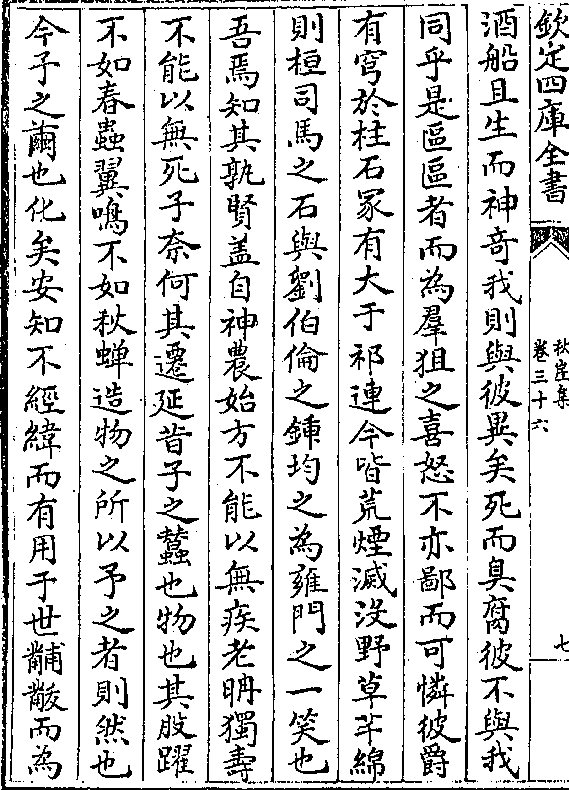 欽定四庫全書
秋崖集
卷三十六
七
酒船且生而神奇我則與彼異矣死而臭腐彼不與我
同乎是區區者而為羣狙之喜怒不亦鄙而可憐彼爵
有窮於柱石冢有大于祁連今皆荒煙滅没野草芊綿
則桓司馬之石與劉伯倫之鍤均之為雍門之一笑也
吾焉知其孰賢盖自神農始方不能以無疾老聃獨壽
不能以無死子奈何其遷延昔子之蠶也物也其股躍
不如春蟲翼鳴不如秋蟬造物之所以予之者則然也
今子之繭也化矣安知不經緯而有用于世黼黻而為